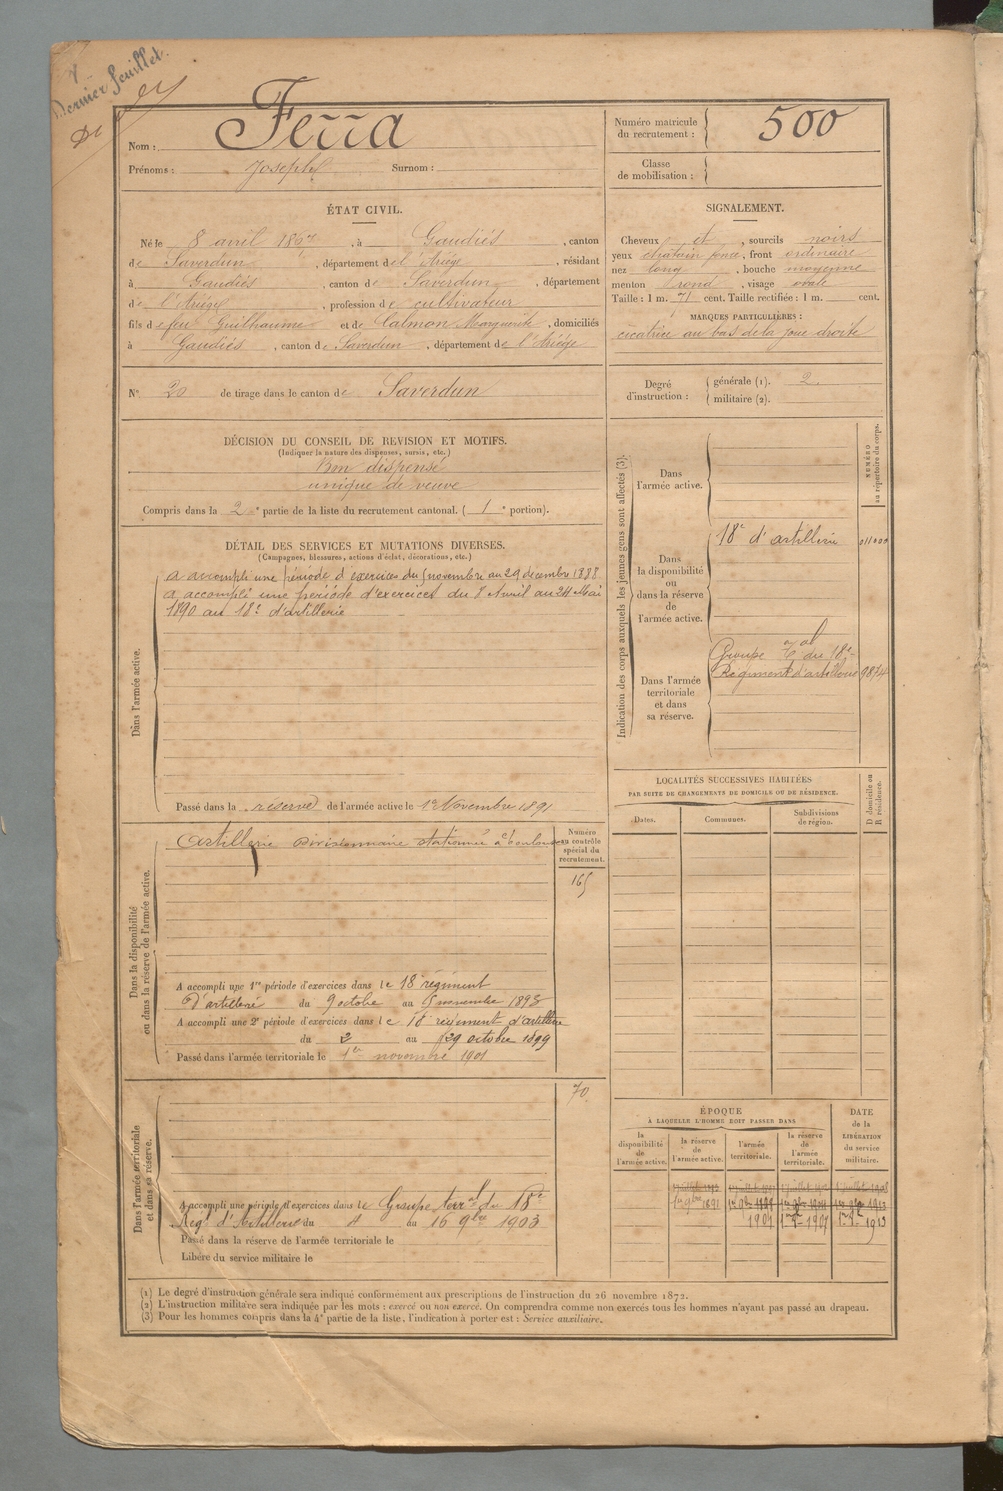 Dernier feuillet.
Nom : Ferra
Prénoms : Joseph Surnom :
Numéro matricule du recrutement : 500
Classe de mobilisation :
ÉTAT CIVIL.
Né le 8 avril , à Gaudiés , canton
de Saverdun , département de l'Ariège , résidant
à Gaudiés , canton de Saverdun , département
de l'Ariège , profession de cultivateur
fils de feu Guilhaume et de Calmon Marguerite , domiciliés
à Gaudiés , canton de Saverdun , département de l'Ariège
SIGNALEMENT.
Cheveux et , sourcils noirs
yeux chatain foncé , front ordinaire
nez long , bouche moyenne
menton rond , visage ovale
Taille : 1 m. 71 cent. Taille rectifiée : 1 m. cent.
MARQUES PARTICULIÈRES :
cicatrice au bas de la joue droite
N° 20 de tirage dans le canton de Saverdun
Degré d'instruction : générale (1). 2.
militaire (2).
DÉCISION DU CONSEIL DE REVISION ET MOTIFS.
(Indiquer la nature des dispenses, sursis, etc.)
Bon dispensé
unique de veuve
Compris dans la 2e partie de la liste du recrutement cantonal. ( 1 e portion).
DÉTAIL DES SERVICES ET MUTATIONS DIVERSES.
(Campagnes, blessures, actions d'éclat, décorations, etc.)
Dans l'armée active.
a accompli une période d'exercices du 5 novembre au 29 decembre 1888
a accompli une période d'exercices du 8 Avril au 24 Mai
1890 au 18e d'artillerie
Passé dans la réserve de l'armée active le 1er Novembre 1891
Dans la disponibilité ou dans la réserve de l'armée active.
Artillerie Divisionnaire stationnée à Toulouse
Numéro au contrôle spécial du recrutement.
165
A accompli une 1re période d'exercices dans le 18e régiment
D'artillerie du 9 octobre au 5 novembre 1893
A accompli une 2e période d'exercices dans le 18e régiment d'artillerie
du 2 au 29 octobre 1899
Passé dans l'armée territoriale le 1er novembre 1901
Dans l'armée territoriale et dans sa réserve.
70
A accompli une période d'exercices dans le Groupe terral du 18e
Regt d'Artillerie du 4 au 16 9bre 1903
Passé dans la réserve de l'armée territoriale le
Libéré du service militaire le
Indication des corps auxquels les jeunes gens sont affectés (3).
NUMÉRO au répertoire du corps.
Dans l'armée active.
Dans la disponibilité ou dans la réserve de l'armée active.
18e d'artillerie
Dans l'armée territoriale et dans sa réserve.
Groupe Tal du 18e
Régiment d'artillerie 9874
LOCALITÉS SUCCESSIVES HABITÉES
PAR SUITE DE CHANGEMENTS DE DOMICILE OU DE RÉSIDENCE.
Dates. Communes. Subdivisions de région.
D domicile ou R résidence.
ÉPOQUE
À LAQUELLE L'HOMME DOIT PASSER DANS
la disponibilité de l'armée active.
la réserve de l'armée active.
l'armée territoriale.
la réserve de l'armée territoriale.
DATE de la LIBÉRATION du service militaire.
1er 9bre 1891
(1) Le degré d'instruction générale sera indiqué conformément aux prescriptions de l'instruction du 26 novembre 1872.
(2) L'instruction militaire sera indiquée par les mots : exercé ou non exercé. On comprendra comme non exercés tous les hommes n'ayant pas passé au drapeau.
(3) Pour les hommes compris dans la 4e partie de la liste, l'indication à porter est : Service auxiliaire.